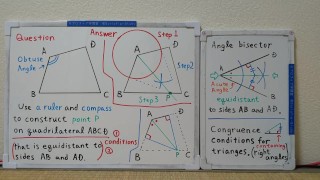 Question
Answer
Step1
Step2
Step3
Obtuse
Angle
A
D
B
C
A
D
B
C
P
Use a ruler and compass
to construct point P
on quadrilateral ABCD
① conditions
②
that is equidistant to
sides AB and AD.
A
D
B
P
C
Angle bisector
A
Acute
Angle
equidistant
to sides AB and AD
Congruence
conditions for
triangles,
(containing
right
angles)